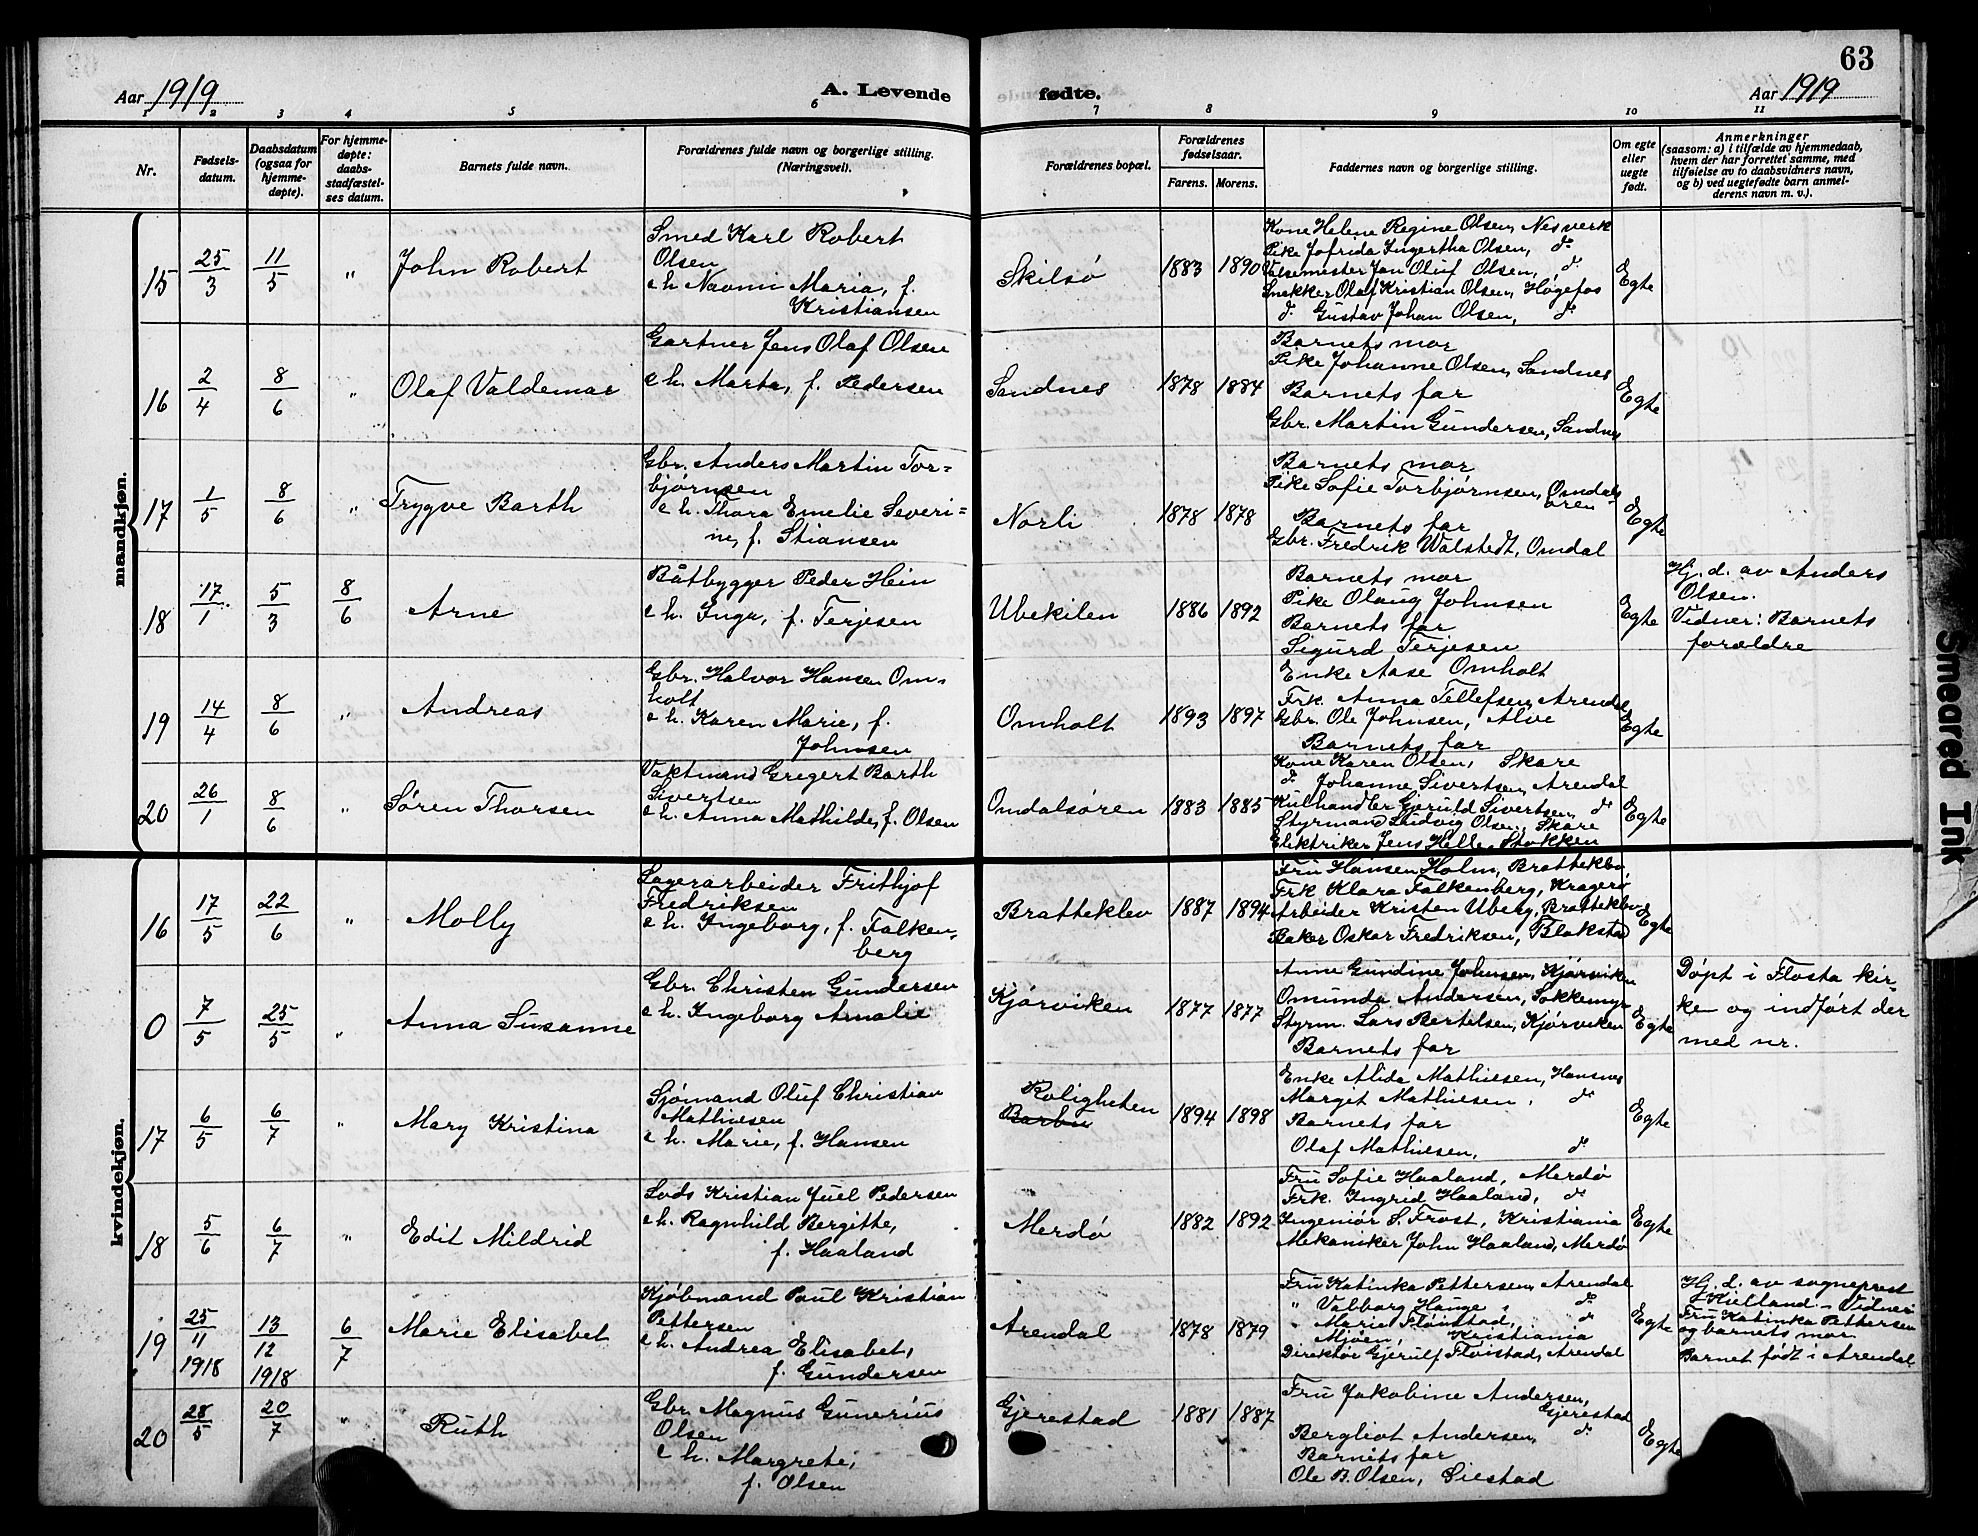 63
Aar 1919
A. Levende fødte.
Aar 1919
1 2 3 4 5 6 7 8 9 10 11
Nr.
Fødsels-
datum.
Daabsdatum
(ogsaa for
hjemme-
døpte).
For hjemme-
døpte:
daabs-
stadfæstel-
ses datum.
Barnets fulde navn.
Forældrenes fulde navn og borgerlige stilling.
(Næringsvei).
Forældrenes bopæl.
Forældrenes
fødselsaar.
Farens. Morens.
Faddernes navn og borgerlige stilling.
Om egte
eller
uegte
født.
Anmerkninger
(saasom: a) i tilfælde av hjemmedaab,
hvem der har forrettet samme, med
tilføielse av to daabsvidners navn,
og b) ved uegtefødte barn anmel-
derens navn m. v.).
mandkjøn.
15 25/3 11/5 " John Robert
Smed Karl Robert
Olsen
e h. Naomi Maria, f.
Kristiansen
Skilsö 1883 1890
Kone Helene Regine Olsen, Nesverk
Pike Jofrida Ingertha Olsen, do
Valsemester Jan Oluf Olsen, do
Snekker Olaf Kristian Olsen, Högefos
do Gustav Johan Olsen, do
Egte
16 2/4 8/6 " Olaf Valdemar
Gartner Jens Olaf Olsen
e h. Marta, f. Pedersen
Sandnes 1878 1884
Barnets mor
Pike Johanne Olsen, Sandnes
Barnets far
Gbr. Martin Gundersen, Sandnes
Egte
17 1/5 8/6 " Trygve Barth
Gbr. Anders Martin Tor=
bjørnsen
e h. Thora Emelie Severi=
ne, f. Stiansen
Norli 1878 1878
Barnets mor
Pike Sofie Torbjørnsen, Omdals
ören
Barnets far
Gbr. Fredrik Walstedt, Omdal
Egte
18 17/1 5/3 8/6 Arne
Båtbygger Peder Hein
e h. Inga, f. Terjesen
Ubekilen 1886 1892
Barnets mor
Pike Olaug Johnsen
Barnets far
Sigurd Terjesen
Egte
Hj. d. av Anders
Olsen.
Vidner: Barnets
forældre
19 14/4 8/6 " Andreas
Gbr. Halvor Hansen Om-
holt
e h. Karen Marie, f.
Johnsen
Omholt 1893 1897
Enke Aase Omholt
Frk. Anna Tellefsen, Arendal
Gbr. Ole Johnsen, Alve
Barnets far
Egte
20 26/1 8/6 " Sören Thorsen
Vaktmand Gregert Barth
Sivertsen
e h. Anna Mathilde, f. Olsen
Omdalsören 1883 1885
Kone Karen Olsen, Skare
do Johanne Sivertsen, Arendal
Kulhandler Gjeruld Sivertsen, do
Styrmand Ludvig Olsen, Skare
Elektriker Jens Helle, Stokken
Egte
kvindekjøn.
16 17/5 22/6 " Molly
Lagerarbeider Frithjof
Fredriksen
e h. Ingeborg, f. Falken-
berg
Bratteklev 1887 1894
Fru Hansen Holm, Bratteklev
Frk Klara Falkenberg, Kragerø
Arbeider Kristen Uberg, Bratteklev
Baker Oskar Fredriksen, Blakstad
Egte
0 7/5 25/5 " Anna Susanne
Gbr. Christen Gundersen
e h. Ingeborg Amalie
Kjörviken 1877 1877
Anne Gundine Johnsen, Kjörviken
Omunda Andersen, Sokkemyr
Styrm. Lars Bertelsen, Kjörviken
Barnets far
Egte
Döpt i Flosta kir-
ke og indfört der
med nr.
17 6/5 6/7 " Mary Kristina
Sjömand Oluf Christian
Mathiesen
e h. Marie, f. Hansen
Roligheten
Barbu
1894 1898
Enke Alida Mathiesen, Hansnes
Margit Mathiesen, do
Barnets far
Olaf Mathiesen, do
Egte
18 5/6 6/7 " Edit Mildrid
Lods Kristian Juel Pedersen
e h. Ragnhild Bergitte,
f. Haaland
Merdö 1882 1892
Fru Sofie Haaland, Merdö
Frk. Ingrid Haaland, do
Ingeniör S. Frost, Kristiania
Mekaniker John Haaland, Merdö
Egte
19 25/11 1918 13/12 1918 6/7 Marie Elisabet
Kjöbmand Paul Kristian
Pettersen
e h. Andrea Elisabet,
f. Gundersen
Arendal 1878 1879
Fru Katinka Pettersen, Arendal
" Valborg Hauge, do
" Marie Flöistad, do
" Mjöen, Kristiania
Direktör Gjerulf Flöistad, Arendal
Egte
Hj. d. av sogneprest
Kielland - Vidner:
Fru Katinka Pettersen
og barnets mor
Barnet födt i Arendal
20 28/5 20/7 " Ruth
Gbr. Magnus Gunerius
Olsen
e h. Margrete,
f. Olsen
Gjerestad 1881 1887
Fru Jakobine Andersen,
Gjerestad
Bergliot Andersen, do
Barnets far
Ole B. Olsen,
Egte
Smeared Ink